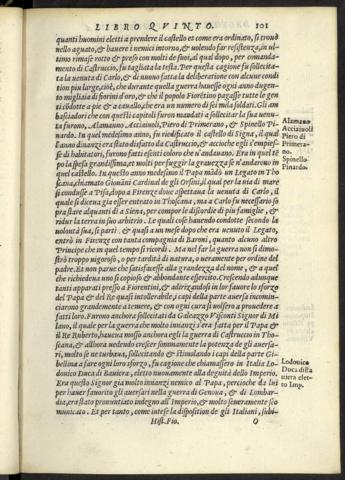 LIBRO QVINTO. 101
quanti huomini eletti a prendere il castello et come era ordinato, si trouò
nello aguato, & hauere i nemici intorno, & uolendo far resistenza, in ul-
timo rimase rotto & preso con molti de suoi, al qual dopo, per comanda-
mento di Castruccio, fu tagliata la testa. Per questa cagione fu sollecita-
ta la uenuta di Carlo, & di nuouo fatta la deliberatione con alcune condi
tion piu large, cioè, che durante quella guerra hauesse ogni anno dugen-
to migliaia di fiorini d'oro, & che il popolo Fiorẽtino pagasse tutte le gen
ti cõdotte a piè & a cauallo, che era un numero di sei mila soldati. Gli am
basciadori che con questi capitoli furon mandati a sollecitar la sua uenu-
ta furono, Alamanno, Acciaiuoli, Piero di Primerano, & Spinello Pi-
nardo. In quel medesimo anno, fu riedificato il castello di Signa, il qual
l'anno dinanzi era stato disfatto da Castruccio, & accioche egli s'empies-
se di habitatori, furono fatti esenti coloro che u'andauano. Era in quel tẽ
po la spesa grandissima, et molti per fuggir la grauezza se n'andaron in
quel castello. In questo anno medesimo il Papa mãdò un Legato in Tho
scana, chiamato Giouãni Cardinal de gli Orsini, il qual per la uia di mare
si condusse a Pisa, dopo a Firenze doue aspettaua la uenuta di Carlo, il
quale si diceua gia esser entrato in Thoscana, ma a Carlo fu necessario so
prastare alquanti dì a Siena, per compor le discordie di piu famiglie, & ri
dur la terra in suo arbitrio. Le quali cose hauendo condotte secondo la
uolontà sua, si partì. & quasi a un mese dopo che era uenuto il Legato,
entrò in Firenze con tanta compagnia di Baroni, quanto alcuno altro
Principe che in quel tempo si ricordi. Ma nel far la guerra non si dimo-
strò troppo uigoroso, o per tardità di natura, o ueramente per ordine del
padre. Et non parue che satisfacesse alla grandezza del nome, & a quel
che richiedeua uno si copioso & abbondante esercito. Crescendo adunque
tanti apparati presso a Fiorentini, & aderizandosi in lor fauore lo sforzo
del Papa & del Re quasi intollerabile, i capi della parte auersa incomin-
ciarono grandemente a temere, & con ogni cura si mossero a prouedere a
fatti loro. Furono anchora sollecitati da Galeazzo Visconti Signor di Mi
lano, il quale per la guerra che molto innanzi s'era fatta per il Papa & 
il Re Ruberto, haueua mosso anchora egli la guerra di Castruccio in Tho
scana, & allhora uedendo crescer sommamente la potenza de gli auersa-
ri, molto se ne turbaua, sollecitando & stimolando i capi della parte Gi-
bellina a fare ogni loro sforzo, fu cagione che chiamassero in Italia Lo-
donico Duca di Bauiera, eletto nuouamente alla degnità dello Imperio.
Era questo Signor gia molto innanzi nemico al Papa, percioche da lui
per hauer fauorito gli auersari nella guerra di Genoua, & di Lombar-
dia, era stato pronuntiato indegno all'Imperio, & molto seueramente sco
municato. Et per tanto, come intese la dispositiõ de gli Italiani, subi-
Hist. Fio. O
Alamano
Acciaiuoli
Piero di
Primera-
no.
Spinello
Pinardo.
Lodouico
Duca di Ba
uiera elet-
to Imp.